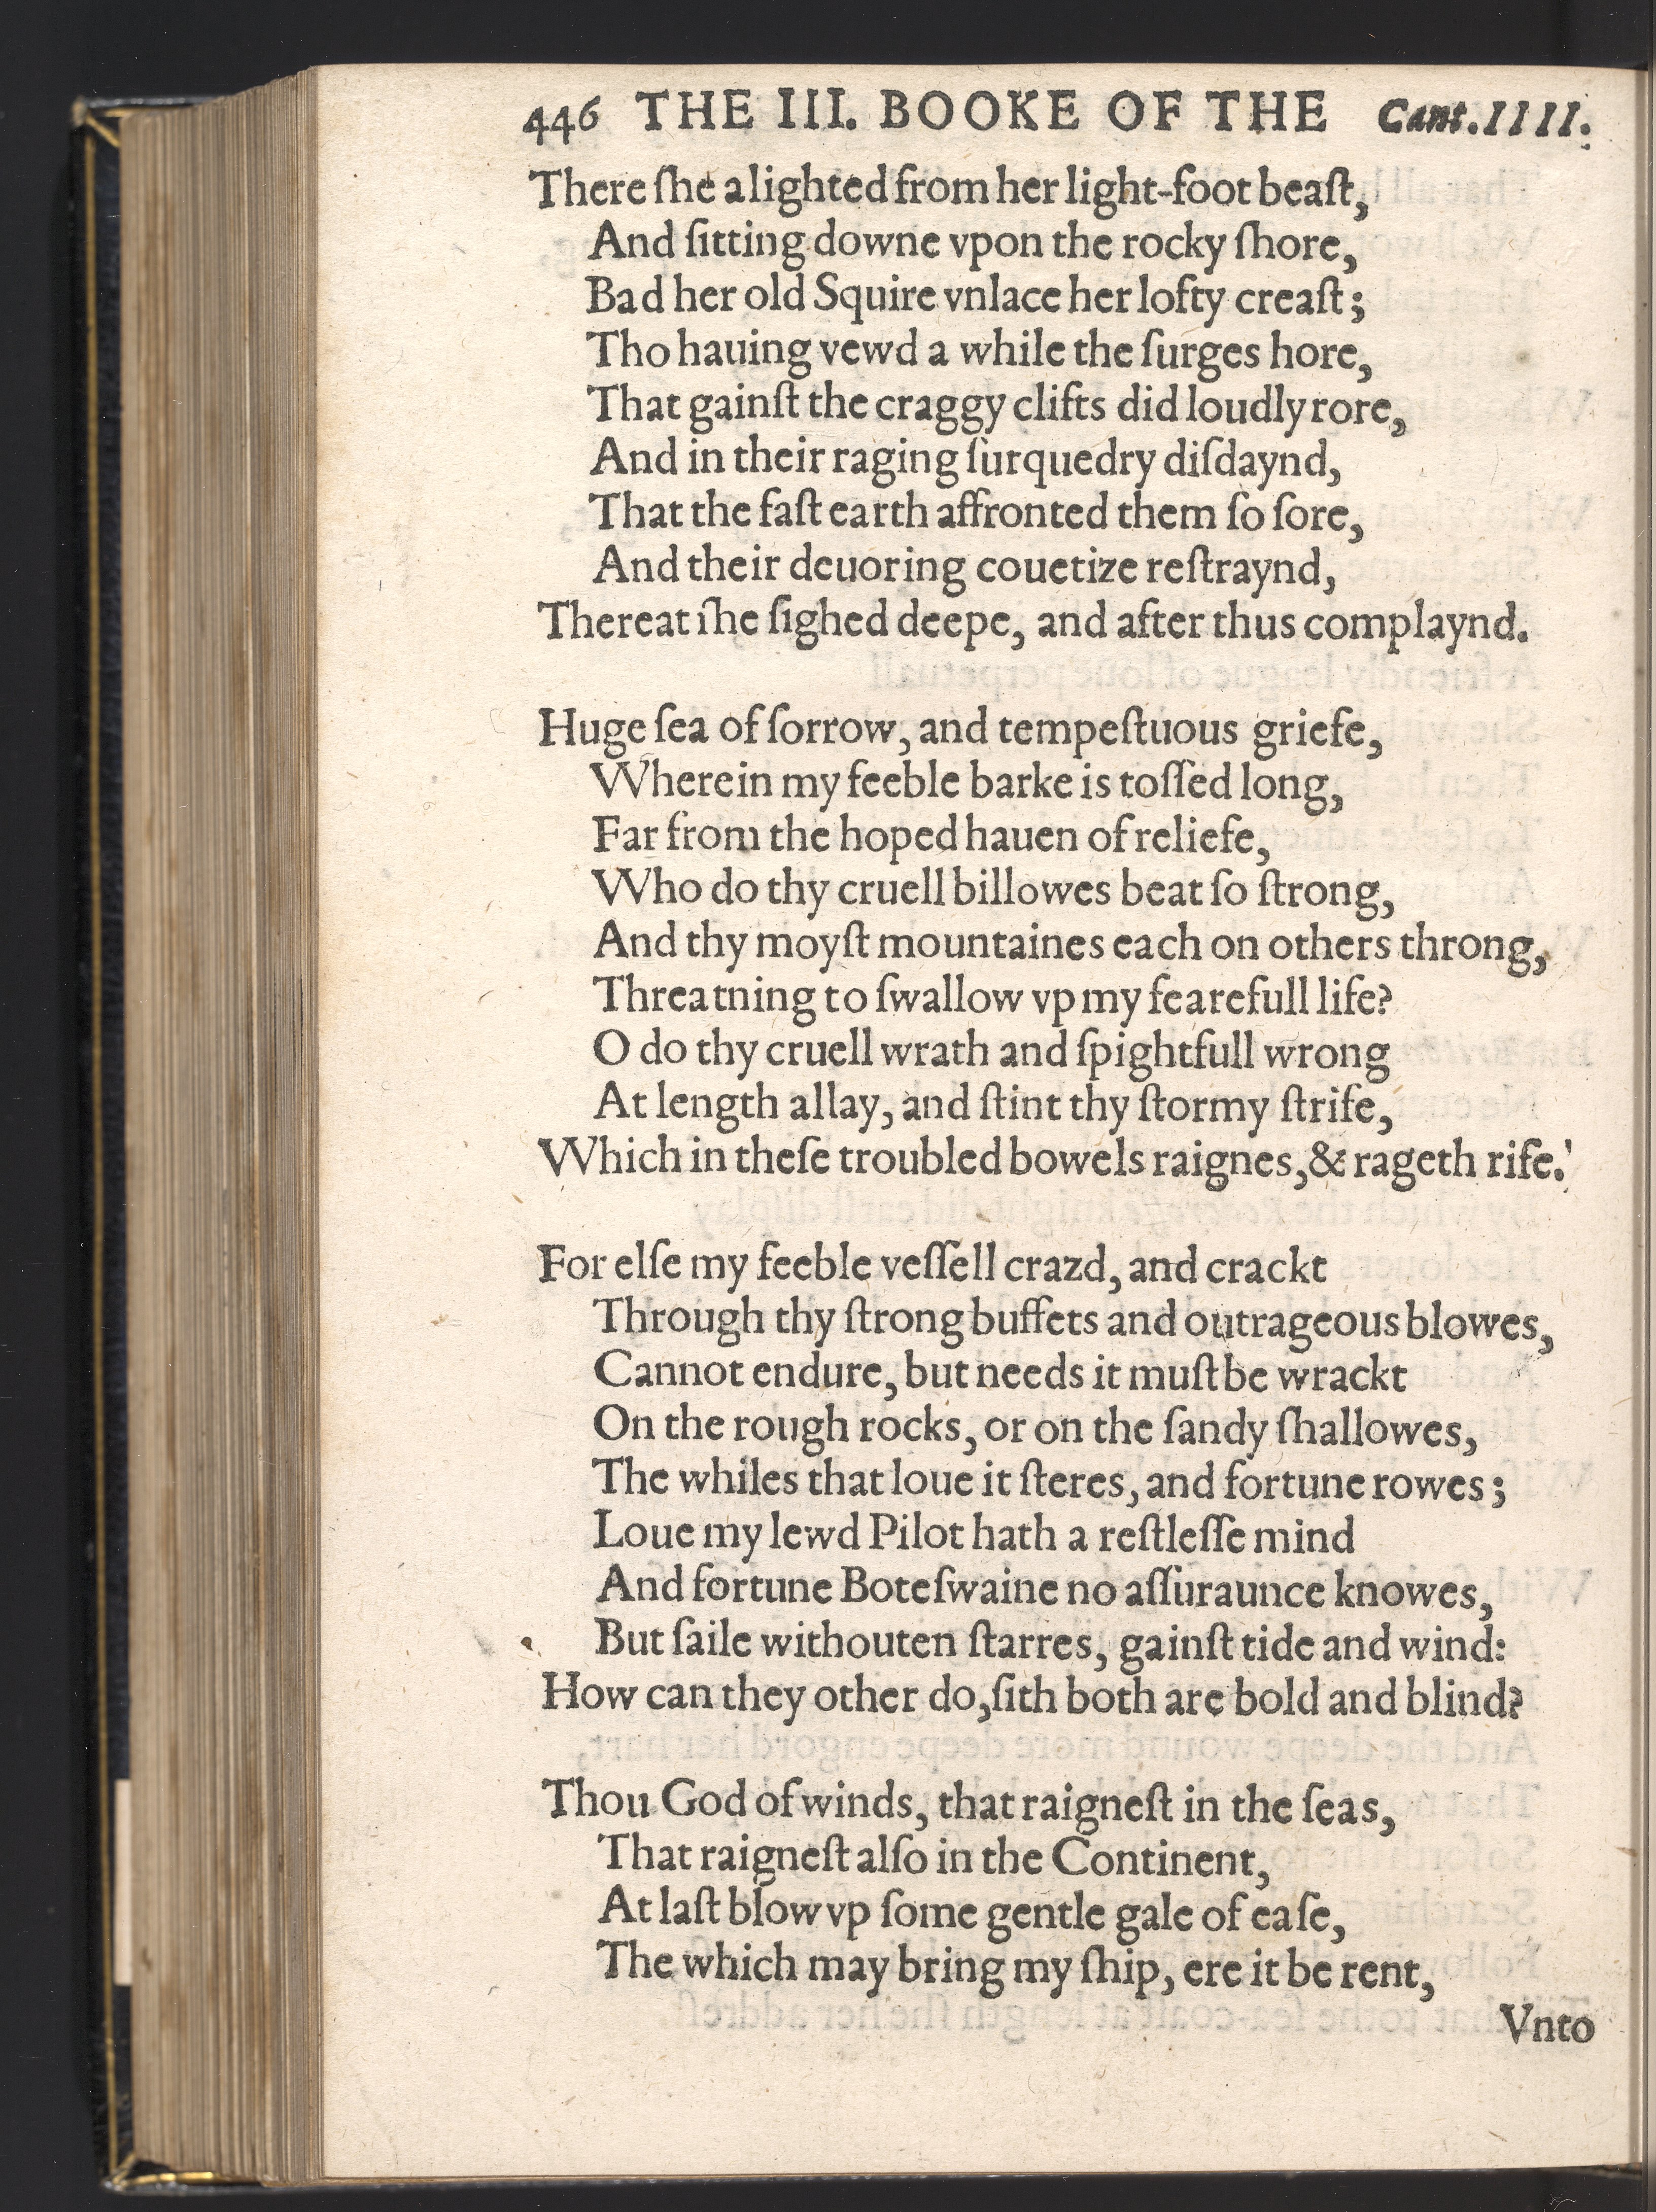 446 THE III. BOOKE OF THE Cant.IIII.
There ſhe alighted from her light-foot beaſt,
And ſitting downe vpon the rocky ſhore,
Bad her old Squire vnlace her lofty creaſt;
Tho hauing vewd a while the ſurges hore,
That gainſt the craggy clifts did loudly rore,
And in their raging ſurquedry diſdaynd,
That the faſt earth affronted them ſo ſore,
And their deuoring couetize reſtraynd,
Thereat ſhe ſighed deepe, and after thus complaynd.
Huge ſea of ſorrow, and tempeſtuous griefe,
Wherein my feeble barke is toſſed long,
Far from the hoped hauen of reliefe,
Who do thy cruell billowes beat ſo ſtrong,
And thy moyſt mountaines each on others throng,
Threatning to ſwallow vp my fearefull life?
O do thy cruell wrath and ſpightfull wrong
At length allay, and ſtint thy ſtormy ſtrife,
Which in theſe troubled bowels raignes,& rageth rife.
For elſe my feeble veſſell crazd, and crackt
Through thy ſtrong buffets and outrageous blowes,
Cannot endure, but needs it muſt be wrackt
On the rough rocks, or on the ſandy ſhallowes,
The whiles that loue it ſteres, and fortune rowes;
Loue my lewd Pilot hath a reſtleſſe mind
And fortune Boteſwaine no aſſuraunce knowes,
But ſaile withouten ſtarres, gainſt tide and wind:
How can they other do,ſith both are bold and blind?
Thou God of winds, that raigneſt in the ſeas,
That raigneſt alſo in the Continent,
At laſt blow vp ſome gentle gale of eaſe,
The which may bring my ſhip, ere it be rent,
Vnto